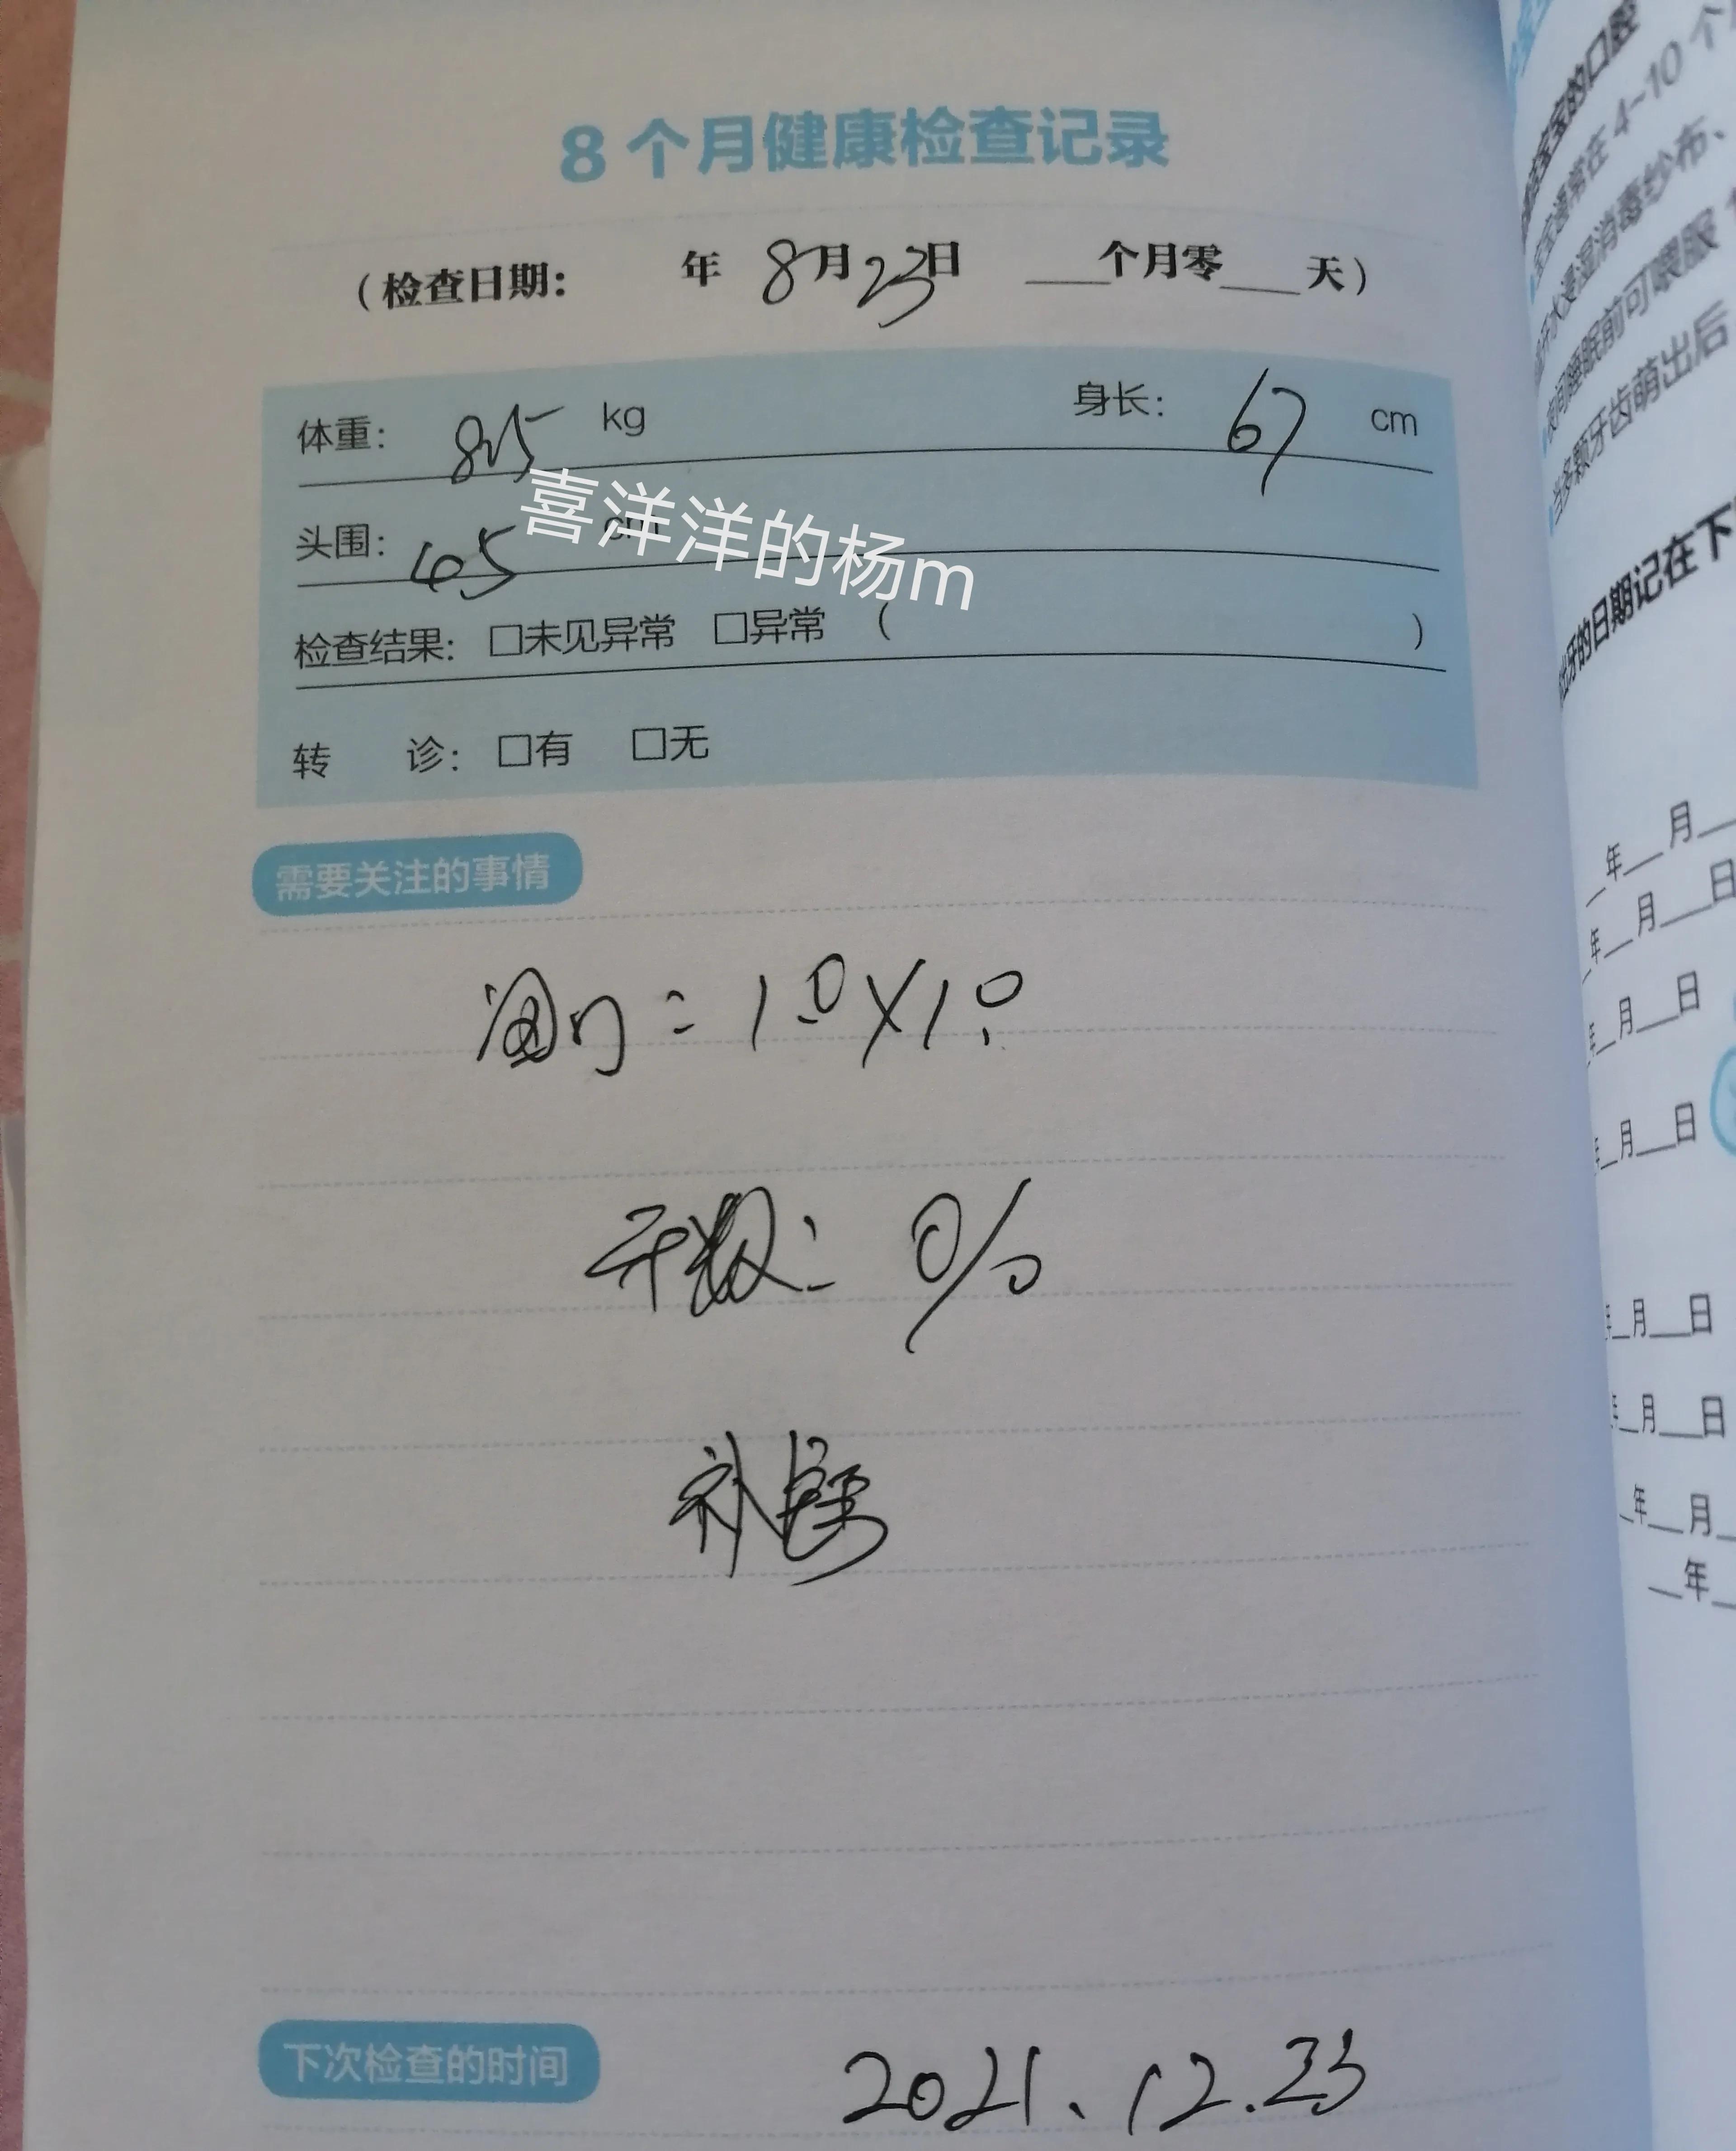 8个月健康检查记录
(检查日期: 年 8月23日 ___个月零___天)
体重: kg 身长: 67 cm
头围: 45 cm
喜洋洋的杨m
检查结果: □未见异常 □异常 ( )
转 诊: □有 □无
需要关注的事情
囟门: 1.0X1.0
牙数: 0/0
补
下次检查的时间
2021.12.23
宝宝的口腔
宝宝通常在4-10个
水浸湿消毒纱布、
夜间睡眠前可喂服
当多颗牙齿萌出后
出牙的日期记在下
__年__月__
__年__月__日
年__月__日
年__月__日
年__月__日
年__月__日
__年__月__
__年__